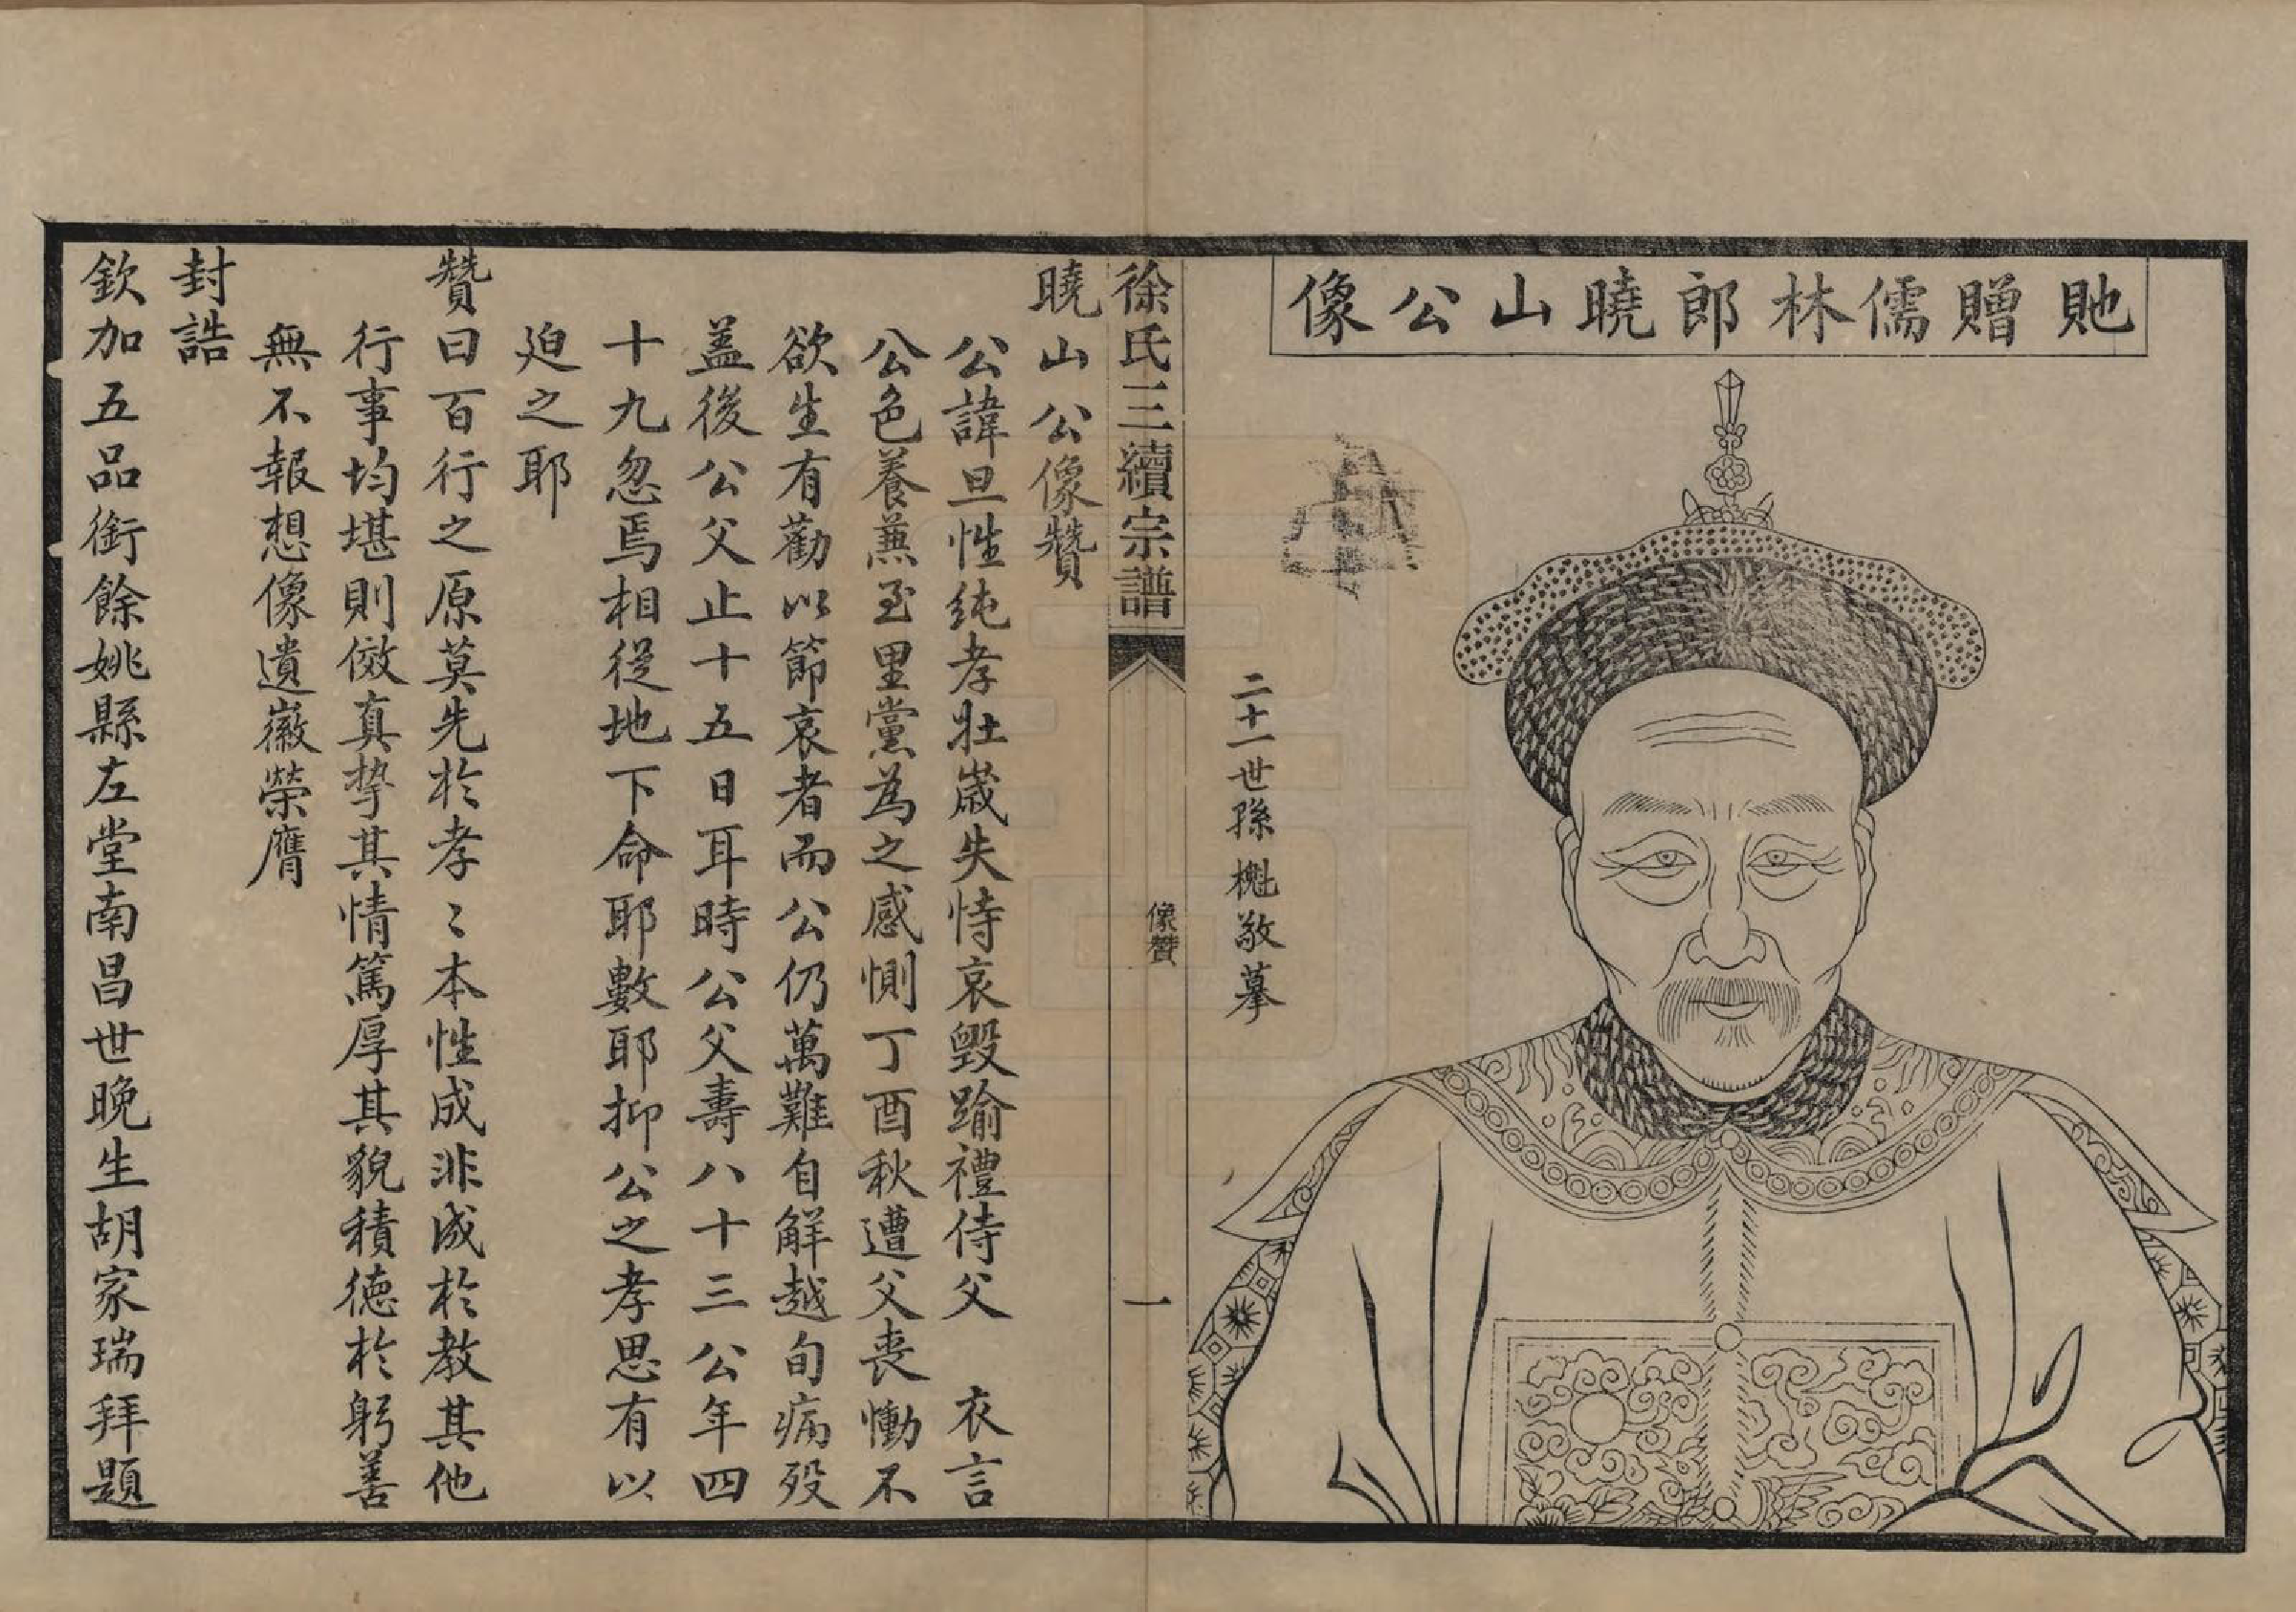 貤贈儒林郎曉山公像
二十一世孫櫆敬摹
徐氏三續宗譜
像贊
一
曉山公像贊
公諱旦性纯孝壯嵗失恃哀毁踰禮侍父 衣言
公色養蒸至里黨為之感惻丁酉秋遭父喪慟不
欲生有勸以節哀者而公仍萬難自解越旬病殁
盖後公父止十五日耳時公父壽八十三公年四
十九忽焉相從地下命耶數耶抑公之孝思有以
廹之耶
贊曰百行之原莫先於孝〻本性成非成於教其他
行事均堪則傚真挚其情篤厚其貌積德於躬善
無不報想像遺徽榮膺
封誥
欽加五品銜餘姚縣左堂南昌世晚生胡家瑞拜題